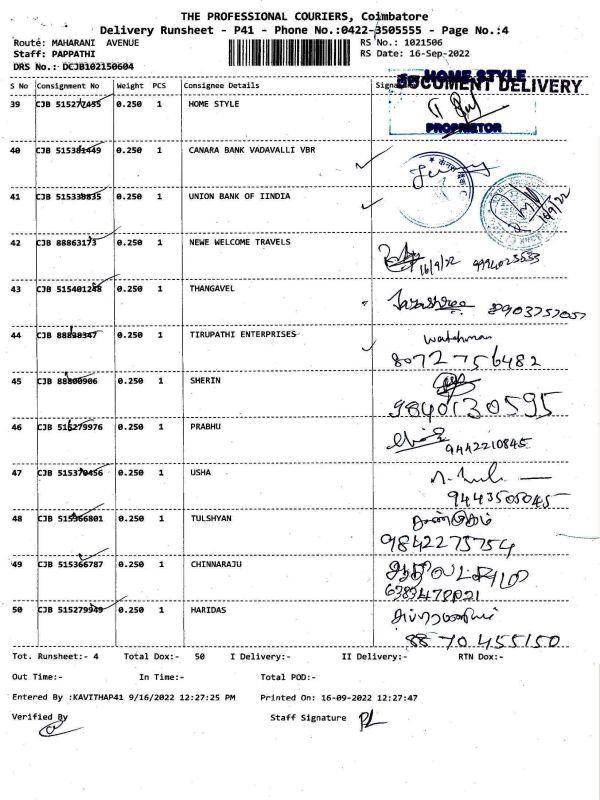 THE PROFESSIONAL COURIERS, Coimbatore
Delivery Runsheet - P41 - Phone No.:0422-3505555 - Page No.:4
Route: MAHARANI AVENUE RS No.: 1021506
Staff: PAPPATHI RS Date: 16-Sep-2022
DRS No.: DCJB102150604
S No Consignment No Weight PCS Consignee Details
HOME STYLE
DOCUMENT DELIVERY
39 CJB 515277455 0.250 1 HOME STYLE
PROPRIETOR
40 CJB 515381449 0.250 1 CANARA BANK VADAVALLI VBR
41 CJB 515338835 0.250 1 UNION BANK OF IINDIA
16/9/22
42 CJB 88863173 0.250 1 NEWE WELCOME TRAVELS
16/9/22 9994025633
43 CJB 515401248 0.250 1 THANGAVEL
Jayashree 8903757057
44 CJB 88838347 0.250 1 TIRUPATHI ENTERPRISES
watchman
8072756482
45 CJB 88800906 0.250 1 SHERIN
9840130595
46 CJB 515279976 0.250 1 PRABHU
9442210845
47 CJB 515370456 0.250 1 USHA
9443505045
48 CJB 515366801 0.250 1 TULSHYAN
9842275754
49 CJB 515366787 0.250 1 CHINNARAJU
50 CJB 515279949 0.250 1 HARIDAS
88 70 455150
Tot. Runsheet:- 4 Total Dox:- 50 I Delivery:- II Delivery:- RTN Dox:-
Out Time:- In Time:- Total POD:-
Entered By :KAVITHAP41 9/16/2022 12:27:25 PM Printed On: 16-09-2022 12:27:47
Verified By Staff Signature